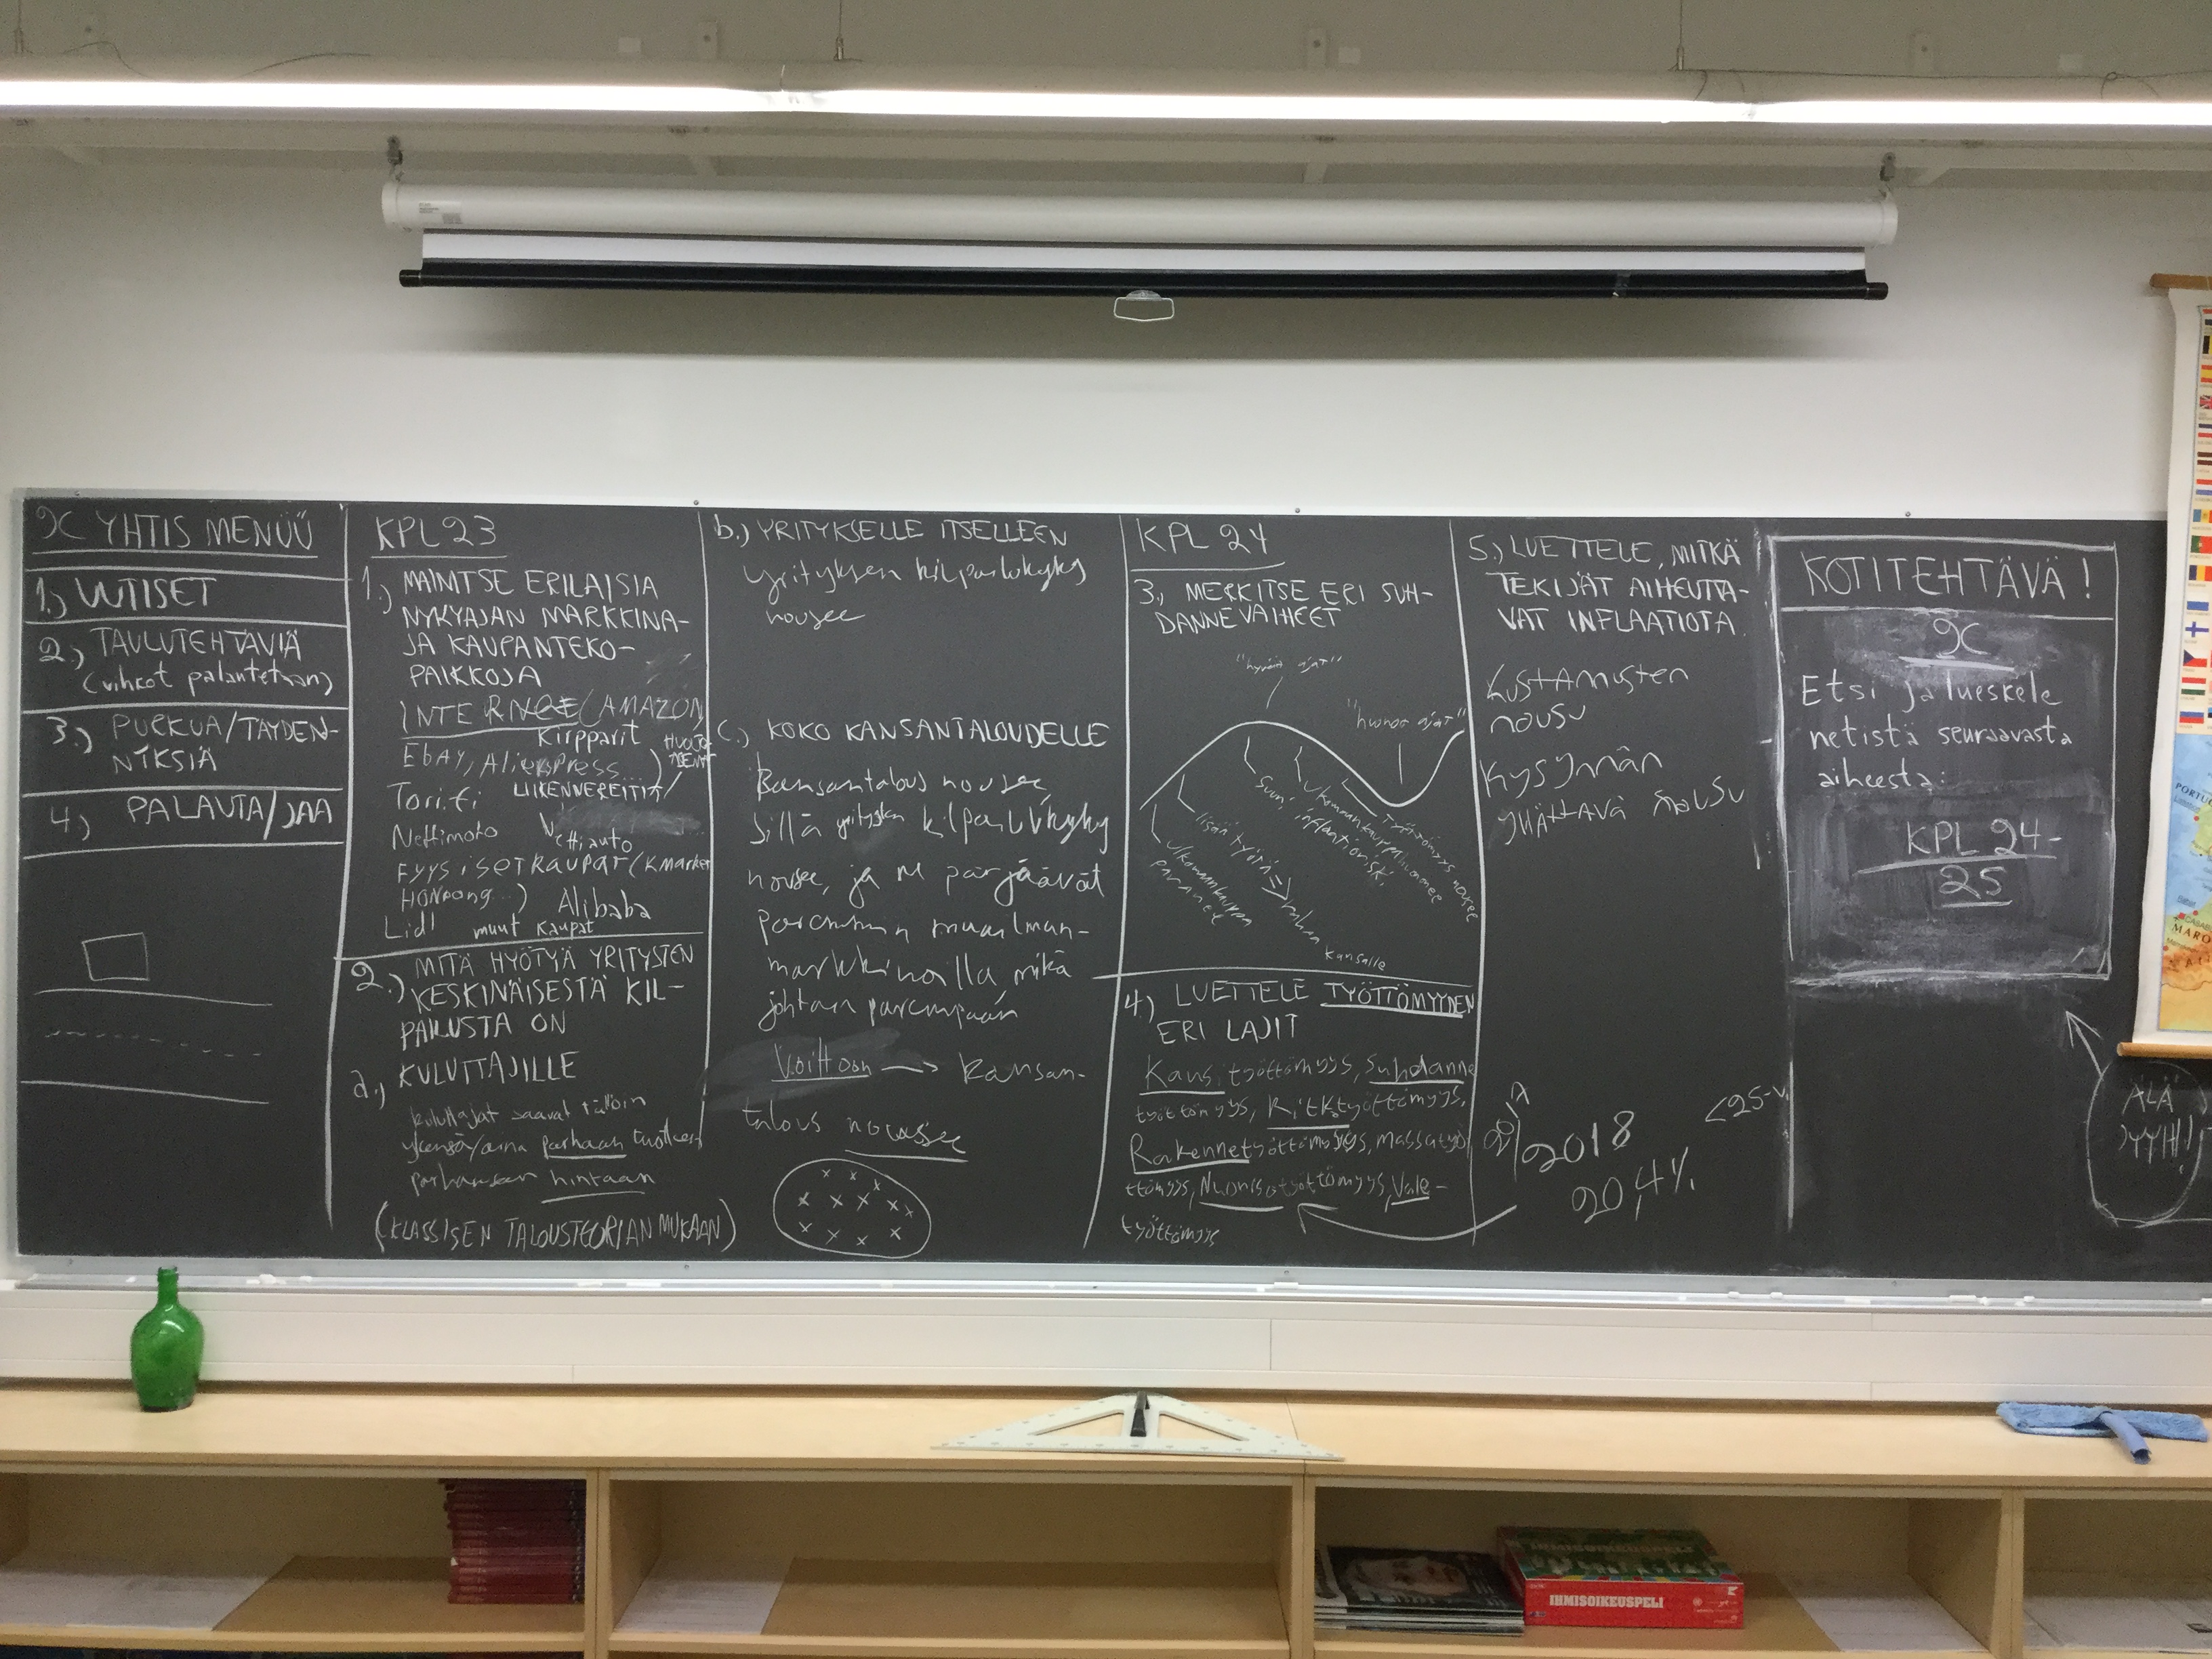 9C YHTIS MENÜÜ
1.) UUTISET
2.) TAULUTEHTÄVIÄ
(vihkot palautetaan)
3.) PURKUA/TÄYDEN-
NYKSIÄ
4.) PALAUTA/JAA
KPL 23
1.) MAINITSE ERILAISIA
NYKYAJAN MARKKINA-
JA KAUPANTEKO-
PAIKKOJA
(AMAZON
Kirpparit
EbAY, Aliexpress...)
Tori.fi
Nettimoto
Nettiauto
FYYsisetkaupat (Kmarket
HONGONG...) Alibaba
Lidl muut kaupat
2.) MITÄ HYÖTYÄ YRITYSTEN
KESKINÄISESTÄ KIL-
PAILUSTA ON
a.) KULUTTAJILLE
kuluttajat saavat tällöin
parhaan
parhaaseen hintaan
(KLASSISEN TALOUSTEORIAN MUKAAN)
b.) YRITYKSELLE ITSELLEEN
yrityksen kilpailukyky
nousee
c.) KOKO KANSANTALOUDELLE
Kansantalous nousee,
Sillä yritysten kilpailukyky
nousee, ja ne pärjäävät
paremmin maailman-
markkinoilla mikä
johtaa parempaan
Voittoon → kansan-
talous nousee
KPL 24
3.) MERKITSE ERI SUH-
DANNEVAIHEET
"hyvät ajat"
"huonot ajat"
ulkomaankauppa
paranee
lisää työtä => rahaa
kansalle
Suuri inflaatioriski
Työttömyys nousee
4.) LUETTELE TYÖTTÖMYYDEN
ERI LAJIT
Kausityöttömyys, Suhdanne
työttömyys, Kitkatyöttömyys,
Rakennetyöttömyys, massatyö
ttömyys, Nuorisotyöttömyys, Vale-
työttömyys
5.) LUETTELE, MITKÄ
TEKIJÄT AIHEUTTA-
VAT INFLAATIOTA.
Kustannusten
nousu
Kysynnän
nousu
<25-v.
2018
20,4%
KOTITEHTÄVÄ!
9C
Etsi ja lueskele
netistä seuraavasta
aiheesta:
KPL 24-
25
ÄLÄ
PYYHI!
PORTU
MARO
IHMISOIKEUSPELI
IHMISOIKEUSPELI